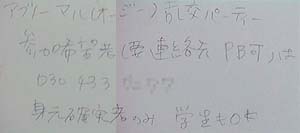 アブノーマル(オージー)乱交パーティー
参加希望者(要連絡先 PB可)は
030 433
身元確実者のみ 学生もOK